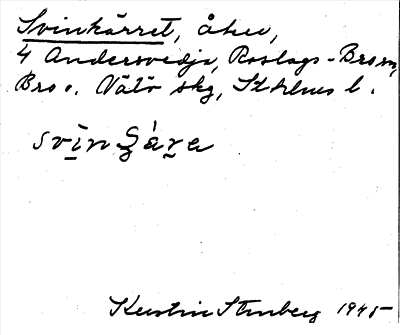 Svinkärret, åker,
4 Andersvedja, Roslags-Bro sn,
Bro o. Vätö skg, Sthlms l.
svìnɕä̀ra
Kerstin Stenberg 1945